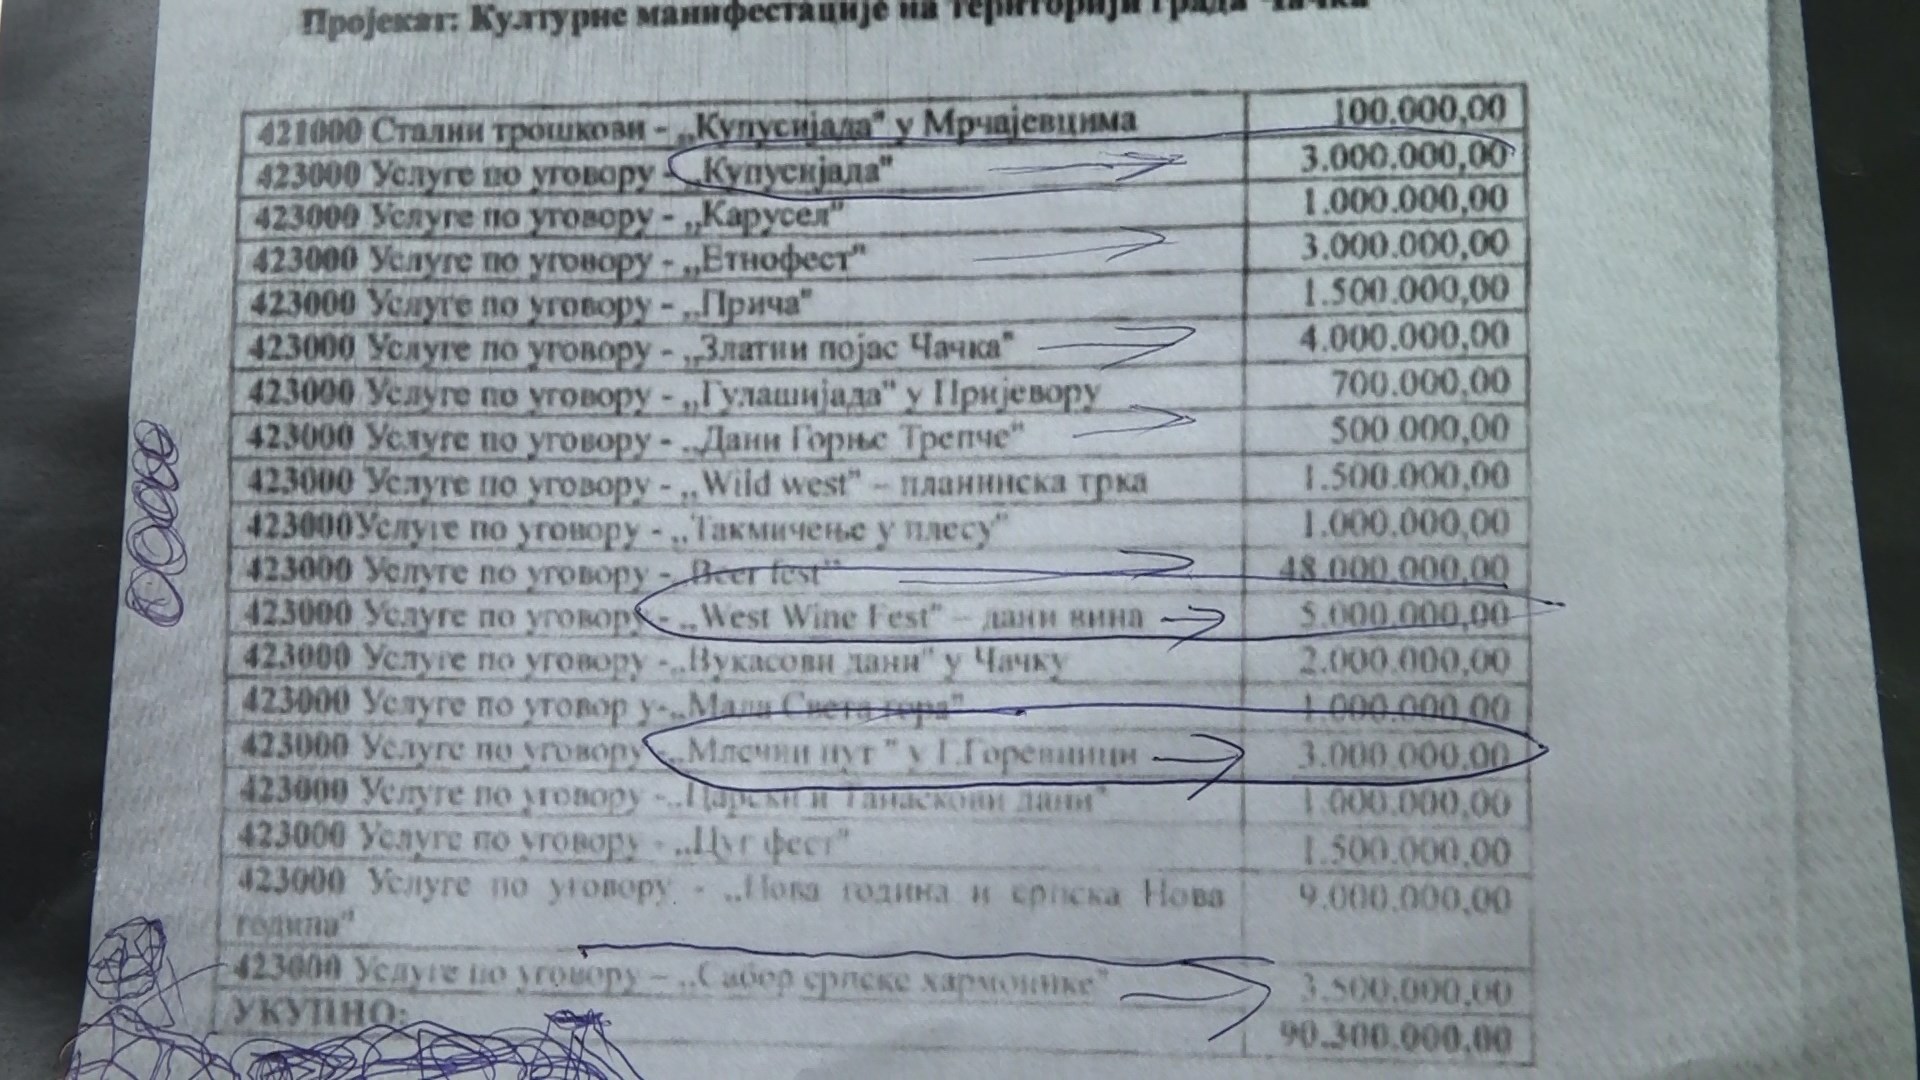 Пројекат: Културне манифестације на територији града Чачка
421000 Стални трошкови - „Купусијада" у Мрчајевцима 100.000,00
423000 Услуге по уговору - „Купусијада" 3.000.000,00
423000 Услуге по уговору - „Карусел" 1.000.000,00
423000 Услуге по уговору - „Етнофест" 3.000.000,00
423000 Услуге по уговору - „Прича" 1.500.000,00
423000 Услуге по уговору - „Златни појас Чачка" 4.000.000,00
423000 Услуге по уговору - „Гулашијада" у Пријевору 700.000,00
423000 Услуге по уговору - „Дани Горње Трепче" 500.000,00
423000 Услуге по уговору - „Wild west" – планинска трка 1.500.000,00
423000Услуге по уговору - „Такмичење у плесу" 1.000.000,00
423000 Услуге по уговору - „Beer fest" 48.000.000,00
423000 Услуге по уговору - „West Wine Fest" – дани вина 5.000.000,00
423000 Услуге по уговору -„Вукасови дани" у Чачку 2.000.000,00
423000 Услуге по уговор у-„Мала Света гора" 1.000.000,00
423000 Услуге по уговору -„Млечни пут " у Г.Горевници 3.000.000,00
423000 Услуге по уговору -„Царски и Танаскови дани" 1.000.000,00
423000 Услуге по уговору - „Цуг фест" 1.500.000,00
423000 Услуге по уговору - „Нова година и српска Нова 9.000.000,00
година"
423000 Услуге по уговору – „Сабор српске хармонике" 3.500.000,00
УКУПНО: 90.300.000,00